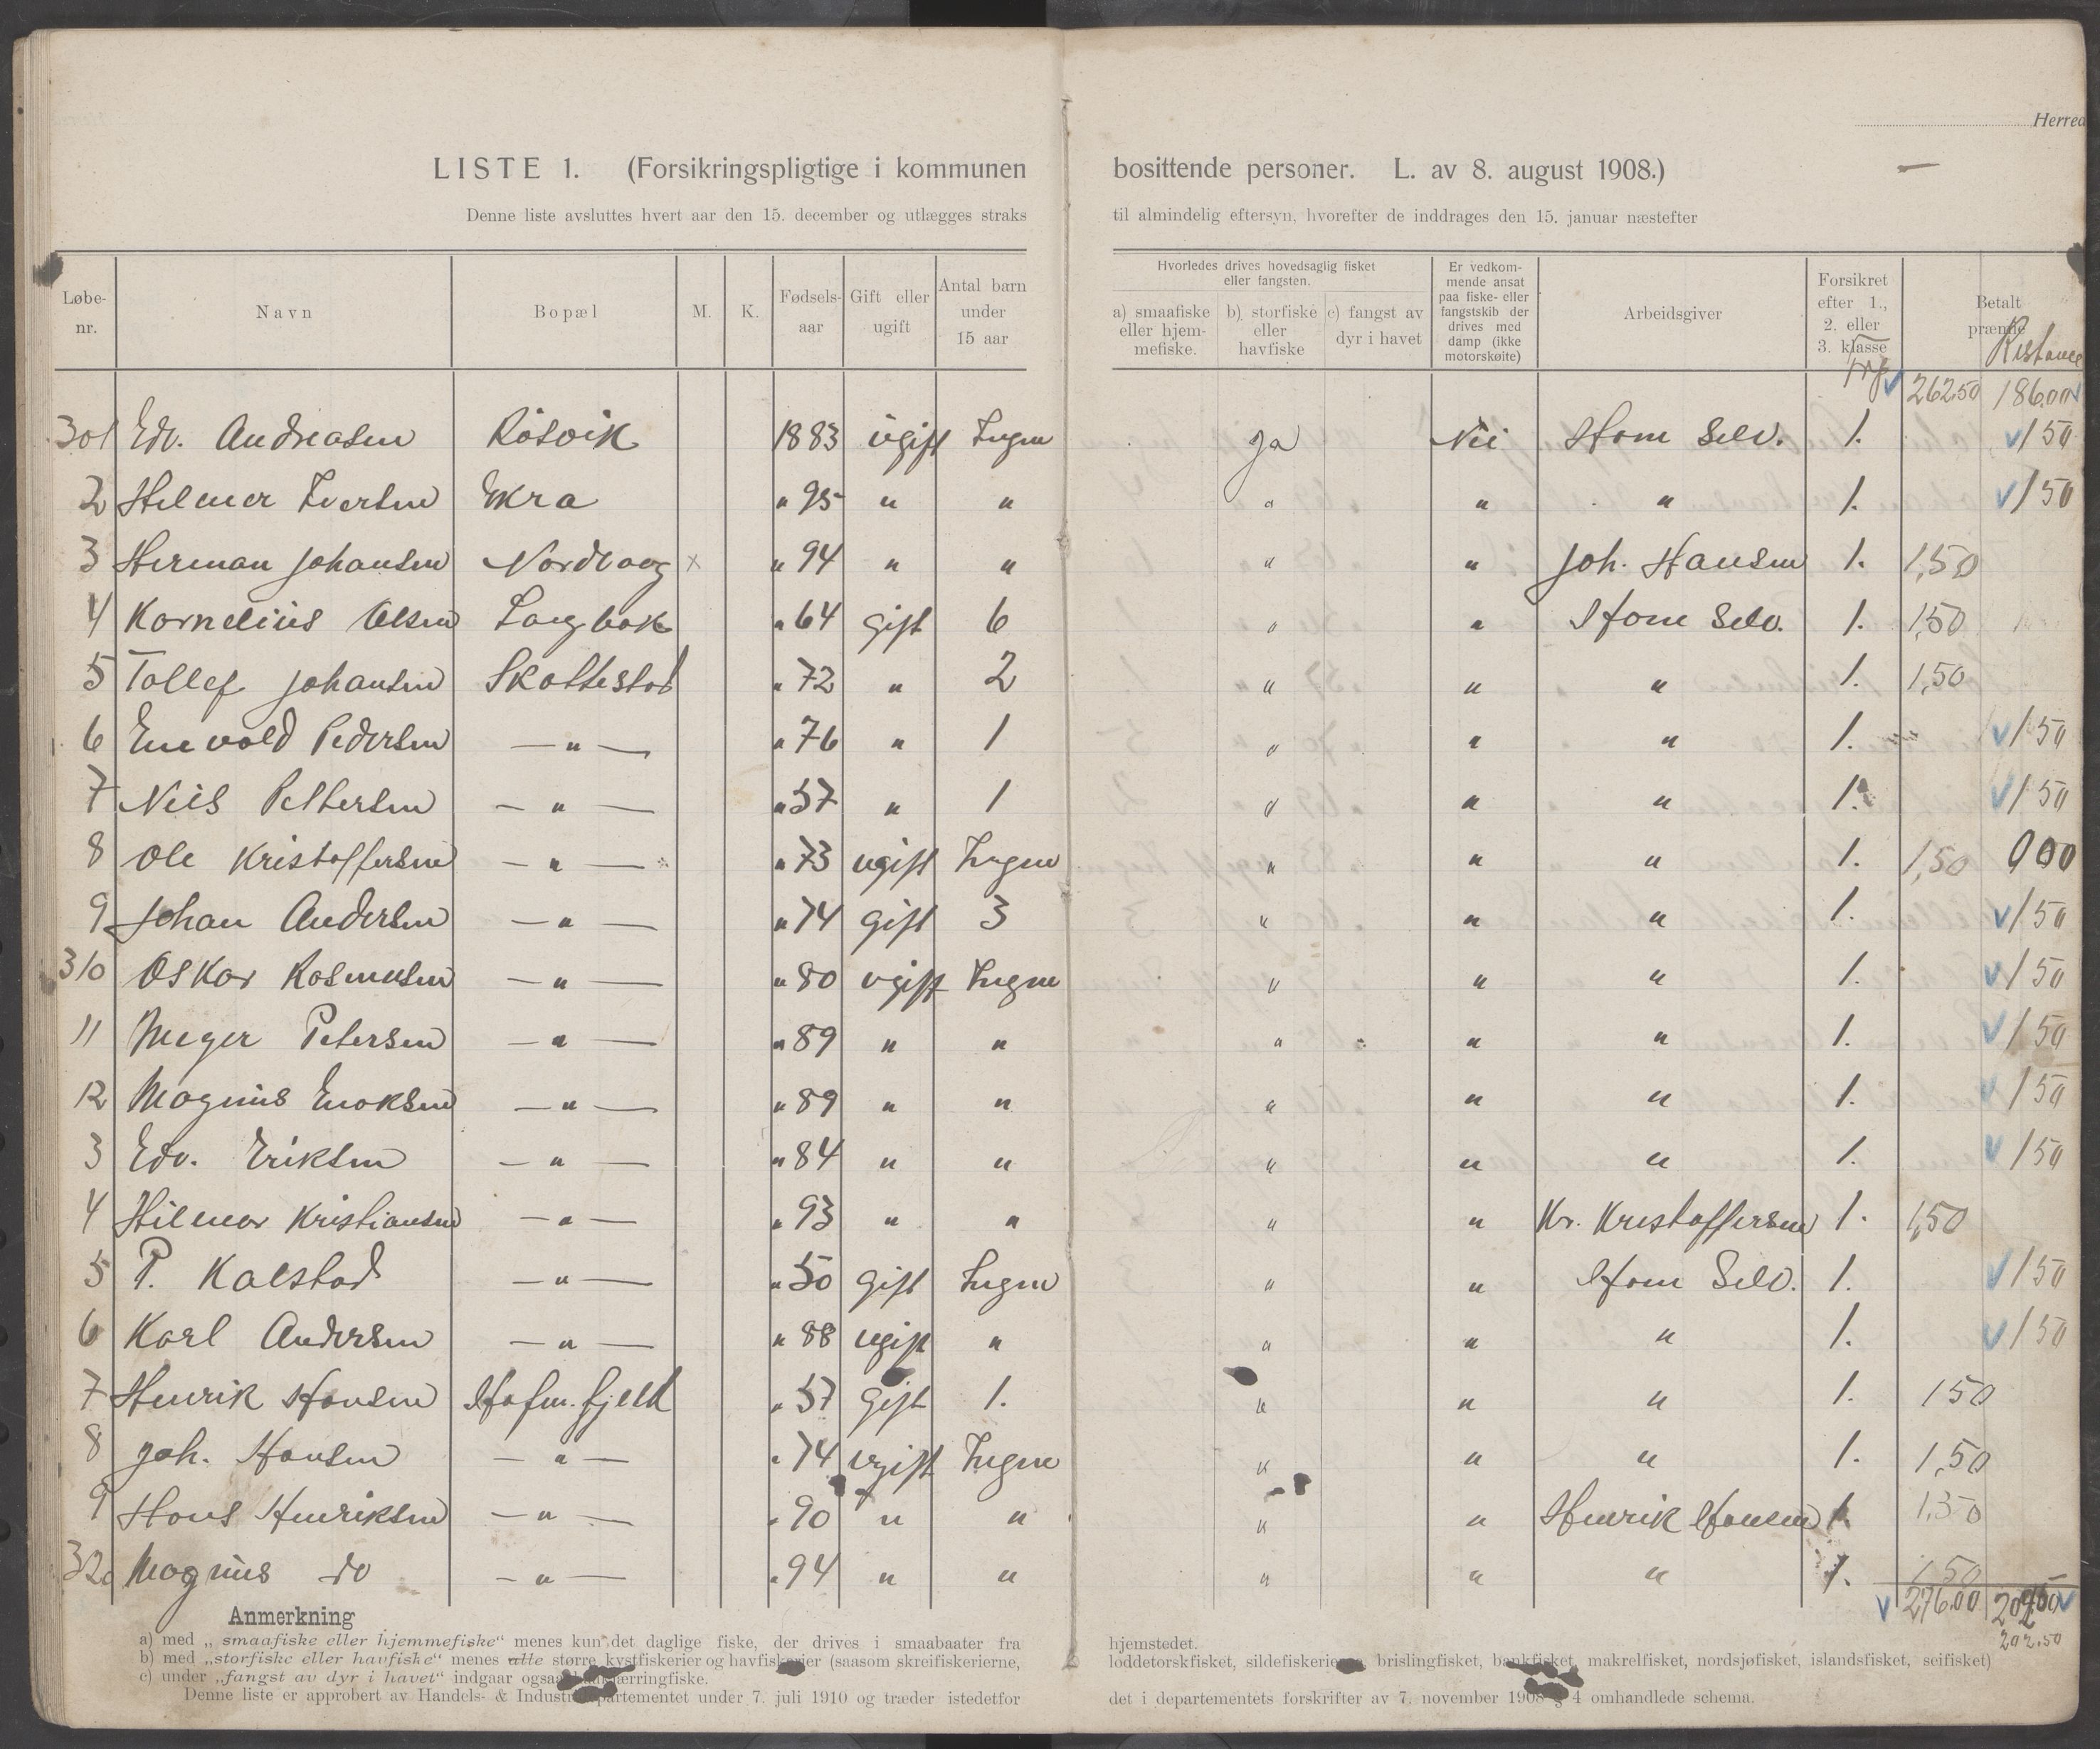 Herred
LISTE 1. (Forsikringspligtige i kommunen bosittende personer. L. av 8. august 1908.)
Denne liste avsluttes hvert aar den 15. december og utlægges straks til almindelig eftersyn, hvorefter de inddrages den 15. januar næstefter
Løbe-nr. Navn Bopæl M. K. Fødsels-aar Gift eller ugift Antal barn under 15 aar Hvorledes drives hovedsaglig fisket eller fangsten. a) smaafiske eller hjem-mefiske. b) storfiske eller havfiske c) fangst av dyr i havet Er vedkom-mende ansat paa fiske- eller fangstskib der drives med damp (ikke motorskøite) Arbeidsgiver Forsikret efter 1., 2. eller 3. klasse Betalt præmie Restance
262.50 186.00
301 Edv. Andreasen Rösvik 1883 ugift Ingen ja Nei Ham Selv. 1. 150
2 Hilmer Iversen Ekra " 95 " " " " " 1. 150
3 Herman Johansen Nordvaag x " 94 " " " " Joh. Hansen 1. 1,50
4 Kornelius Olsen Langbak " 64 gift 6 " " Ham Selv. 1. 1,50
5 Tollef Johansen Skottestad " 72 " 2 " " " 1. 1,50
6 Enevold Pedersen — " — " 76 " 1 " " " 1. 150
7 Neis Pettersen — " — " 57 " 1 " " " 1. 150
8 Ole Kristoffersen — " — " 73 ugift Ingen " " " 1. 1,50 000
9 Johan Andersen — " — " 74 gift 3 " " " 1. 150
310 Oskar Rasmusen — " — " 80 ugift Ingen " " " 1. 150
11 Meyer Petersen — " — " 89 " " " " " 1. 150
12 Magnus Enoksen — " — " 89 " " " " " 1. 150
3 Edv. Eriksen — " — " 84 " " " " " 1. 150
4 Hilmar Kristiansen — " — " 93 " " " " Kr. Kristoffersen 1. 1,50
5 P. Kalstad — " — " 50 gift Ingen " " Ham Selv. 1. 150
6 Karl Andersen — " — " 88 ugift " " " " 1. 150
7 Henrik Hansen Hafm.fjeld " 57 gift 1. " " " 1. 150
8 Joh. Hansen — " — " 74 ugift Ingen " " " 1. 1,50
9 Hans Henriksen — " — " 90 " " " " Henrik Hansen 1. 1,50
320 Magnus do — " — " 94 " " " " " 1. 150
276.00
202.50
Anmerkning
a) med „smaafiske eller hjemmefiske“ menes kun det daglige fiske, der drives i smaabaater fra hjemstedet.
b) med „storfiske eller havfiske“ menes alle større kystfiskerier og havfiskerier (saasom skreifiskerierne, loddetorskfisket, sildefiskerierne, brislingfisket, bankfisket, makrelfisket, nordsjøfisket, islandsfisket, seifisket)
c) under „fangst av dyr i havet“ indgaar ogsaa
Denne liste er approbert av Handels- & Industridepartementet under 7. juli 1910 og træder istedetfor det i departementets forskrifter av 7. november 1908 § 4 omhandlede schema.